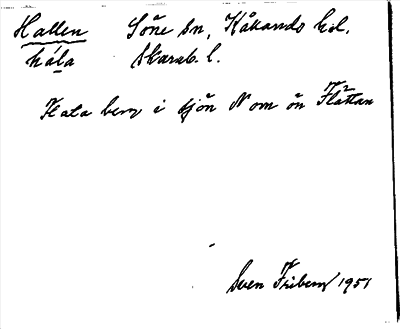 Hallen Söne sn, Kållands hd.
håla Skarab. l.
Kala berg i sjön N om ön Flåttan
Sven Friberg 1951